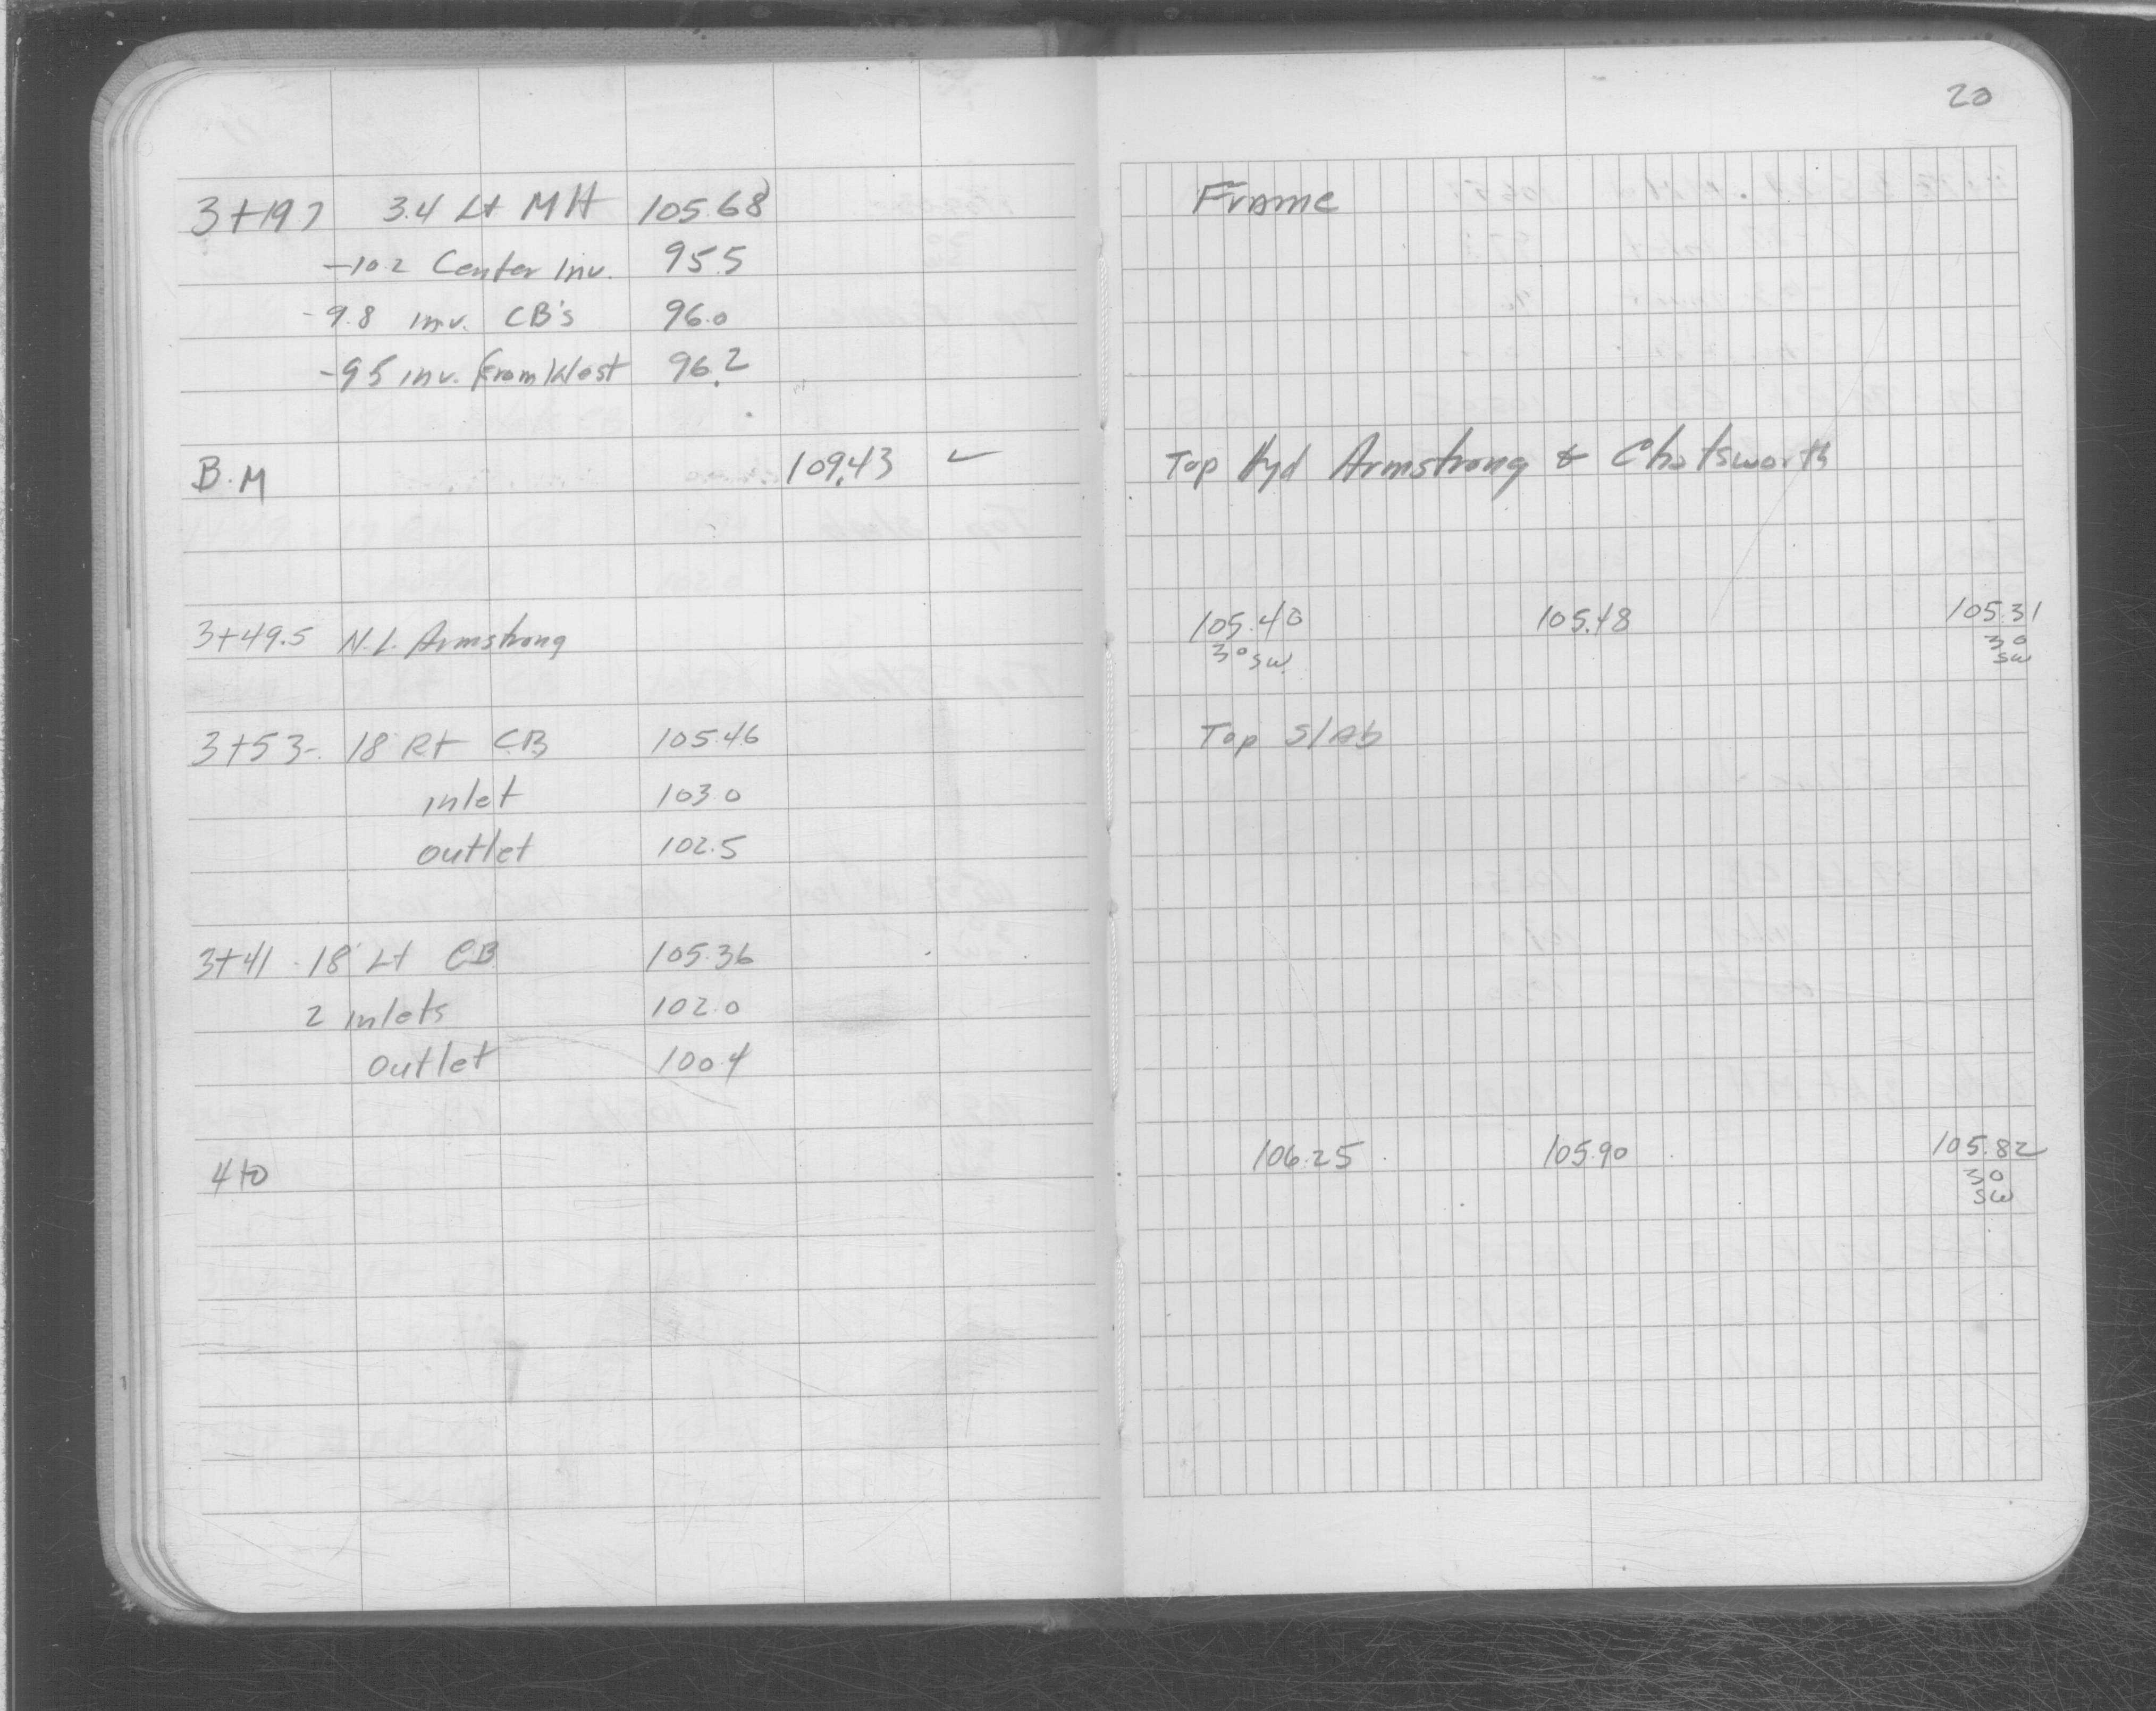 20
3+197 3.4 Lt MH 105.68 Frame
-10.2 Center Inv. 95.5
-9.8 inv. CB's 96.0
-9.5 inv. From West 96.2
B.M 109.43 ✓ Top Hyd Armstrong & Chatsworth
3+49.5 N.L. Armstrong 105.40 105.48 105.31
30 SW 30
SW
3+53- 18 Rt CB 105.46 Top Slab
inlet 103.0
outlet 102.5
3+41 - 18' Lt CB 105.36
2 inlets 102.0
outlet 100.4
4+0 106.25 105.90 105.82
30
SW